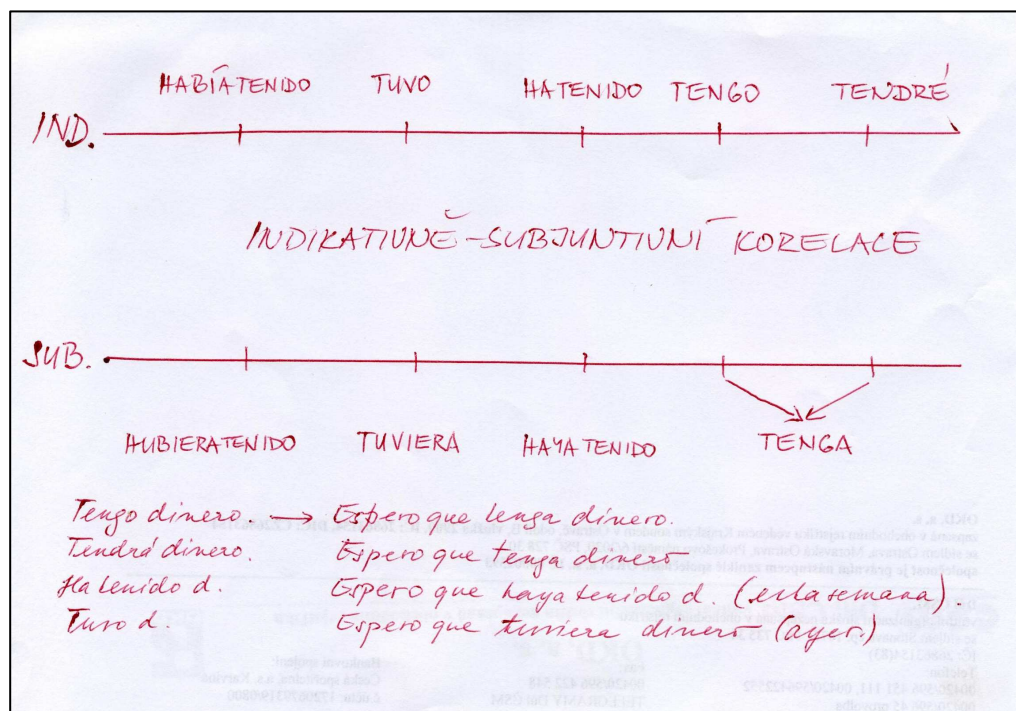 HABÍA TENIDO TUVO HA TENIDO TENGO TENDRÉ
IND.
INDIKATIVNĚ-SUBJUNTIVNÍ KORELACE
SUB.
HUBIERA TENIDO TUVIERA HAYA TENIDO TENGA
Tengo dinero. → Espero que tenga dinero.
Tendrá dinero. Espero que tenga dinero
Ha tenido d. Espero que haya tenido d. (esta semana)
Tuvo d. Espero que tuviera dinero (ayer.)